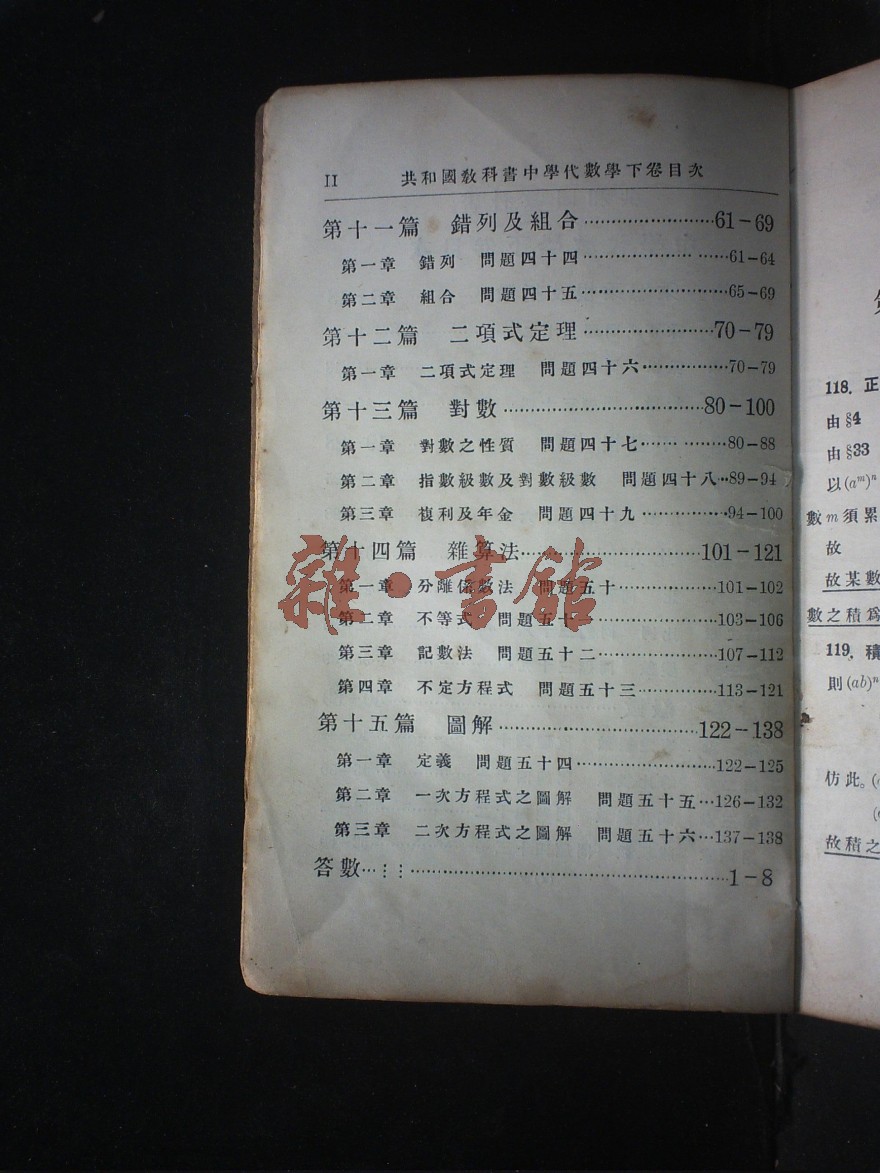 II 共和國敎科書中學代數學下卷目次
第十一篇 錯列及組合……………………61-69
第一章 錯列 問題四十四……………………61-64
第二章 組合 問題四十五……………………65-69
第十二篇 二項式定理……………………70-79
第一章 二項式定理 問題四十六……………70-79
第十三篇 對數……………………………80-100
第一章 對數之性質 問題四十七…… ………80-88
第二章 指數級數及對數級數 問題四十八…89-94
第三章 複利及年金 問題四十九……………94-100
第十四篇 雜算法……………………………101-121
第一章 分離係數法 問題五十………………101-102
第二章 不等式 問題五十一…………………103-106
第三章 記數法 問題五十二…………………107-112
第四章 不定方程式 問題五十三……………113-121
第十五篇 圖解………………………………122-138
第一章 定義 問題五十四……………………122-125
第二章 一次方程式之圖解 問題五十五…126-132
第三章 二次方程式之圖解 問題五十六…137-138
答數……………………………………………1-8
雜·書館
118. 正
由§4
由§33
以(aᵐ)ⁿ
數m須累
故
故某數
數之積爲
119. 積
則(ab)ⁿ
仿此。(
故積之